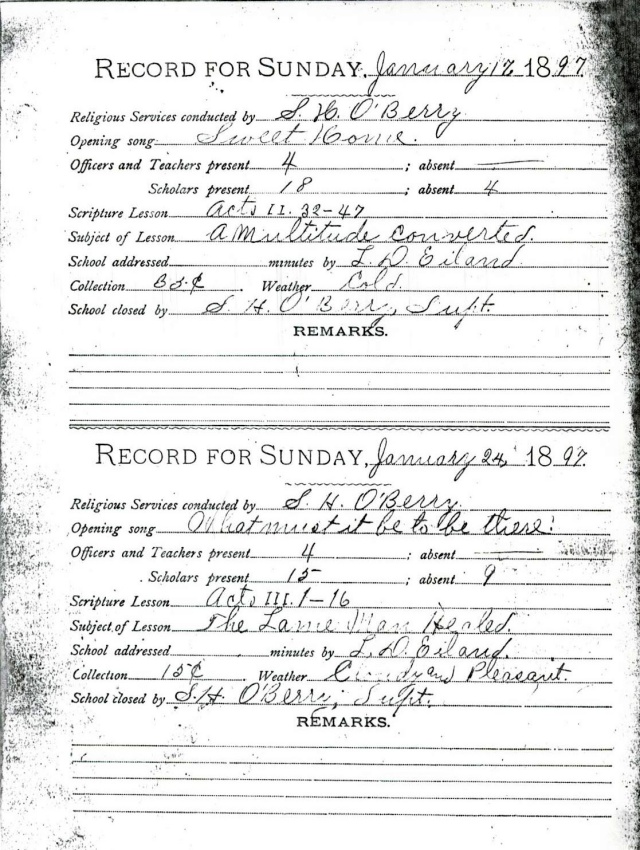 RECORD FOR SUNDAY, January 17, 1897
Religious Services conducted by S. H. O'Berry
Opening song Sweet Home.
Officers and Teachers present 4 ; absent
Scholars present 18 ; absent 4
Scripture Lesson Acts II. 32-47
Subject of Lesson A Multitude converted.
School addressed minutes by L. D. Eiland
Collection ¢. Weather Cold.
School closed by S. H. O'Berry, Supt.
REMARKS.
RECORD FOR SUNDAY, January 24, 1897.
Religious Services conducted by S. H. O'Berry
Opening song What must it be to be there!
Officers and Teachers present 4 ; absent
Scholars present 15 ; absent 9
Scripture Lesson Acts III. 1-16
Subject of Lesson The Lame Man Healed.
School addressed minutes by L. D. Eiland.
Collection 15¢ Weather and Pleasant.
School closed by S. H. O'Berry, Supt.
REMARKS.